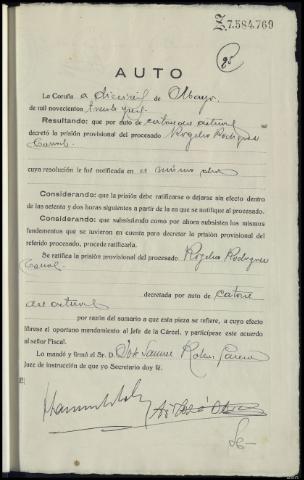 Z.7.584.769
AUTO
La Coruña a dieciseis de Mayo
de mil novecientos treinta y seis.
Resultando: que por auto de catorce del actual se
decretó la prisión provisional del procesado Rogelio Rodriguez
cuya resolución le fué notificada en el mismo dia
Considerando: que la prisión debe ratificarse o dejarse sin efecto dentro
de las setenta y dos horas siguientes a partir de la en que se notifique al procesado.
Considerando: que subsistiendo como por ahora subsisten los mismos
fundamentos que se tuvieron en cuenta para decretar la prisión provisional del
referido procesado, procede ratificarla.
Se ratifica la prisión provisional del procesado Rogelio Rodriguez
decretada por auto de catorce
del actual
por razón del sumario a que esta pieza se refiere, a cuyo efecto
líbrese el oportuno mandamiento al Jefe de la Cárcel, y participese este acuerdo
al señor Fiscal.
Lo mandó y firmó el Sr. D. José
Juez de instrucción de que yo Secretario doy fé.